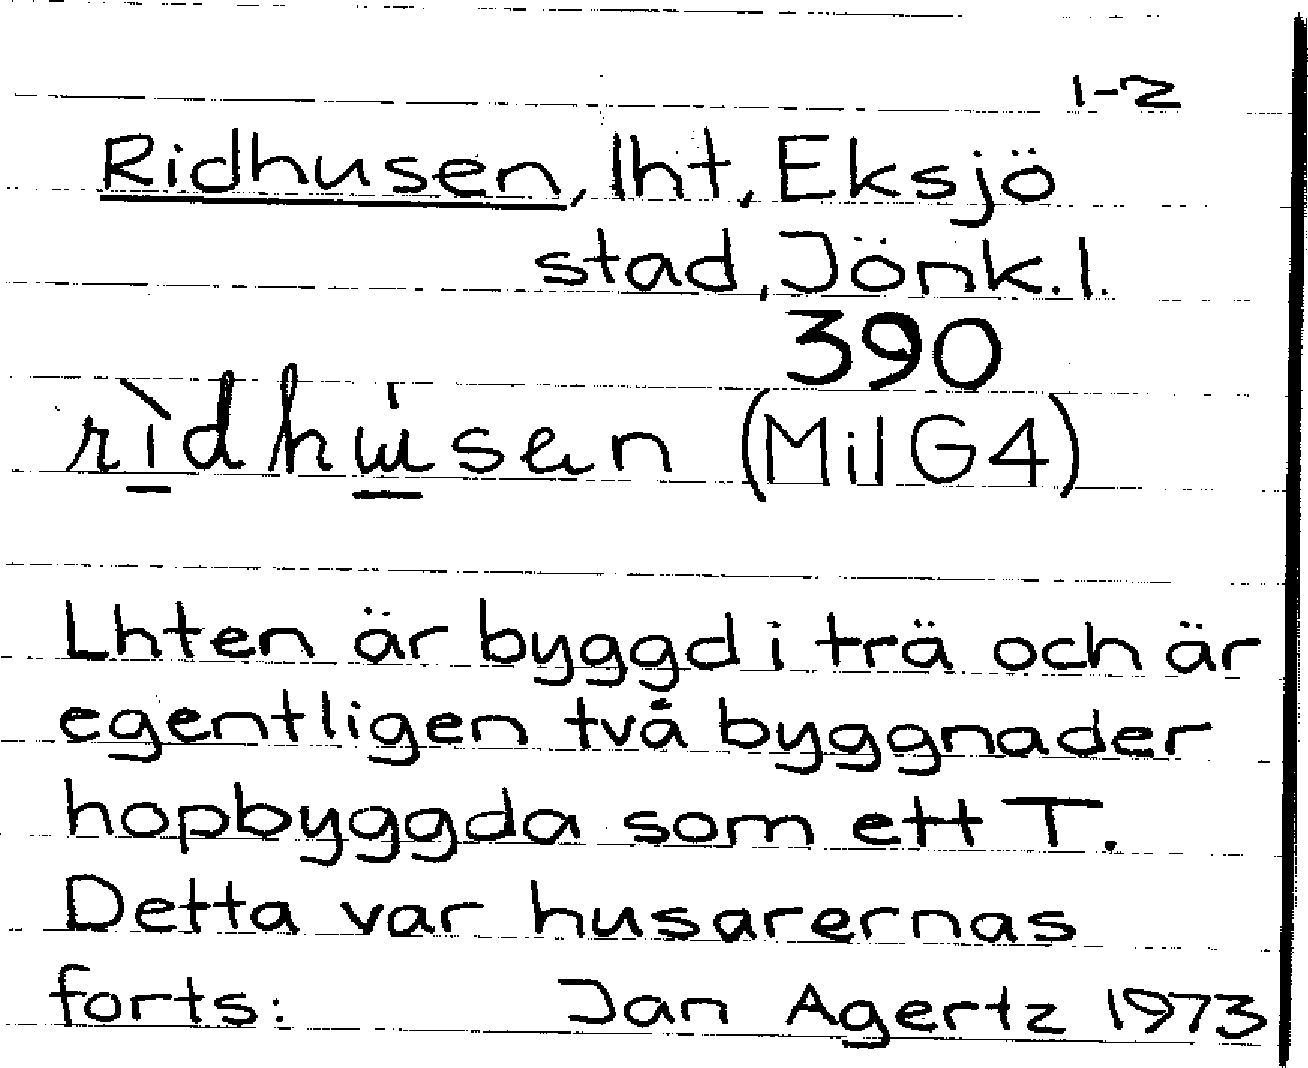 1-2
Ridhusen, lht, Eksjö
stad, Jönk. l.
390
rìdhusen (Mil G4)
Lhten är byggd i trä och är
egentligen två byggnader
hopbyggda som ett T.
Detta var husarernas
forts: Jan Agertz 1973